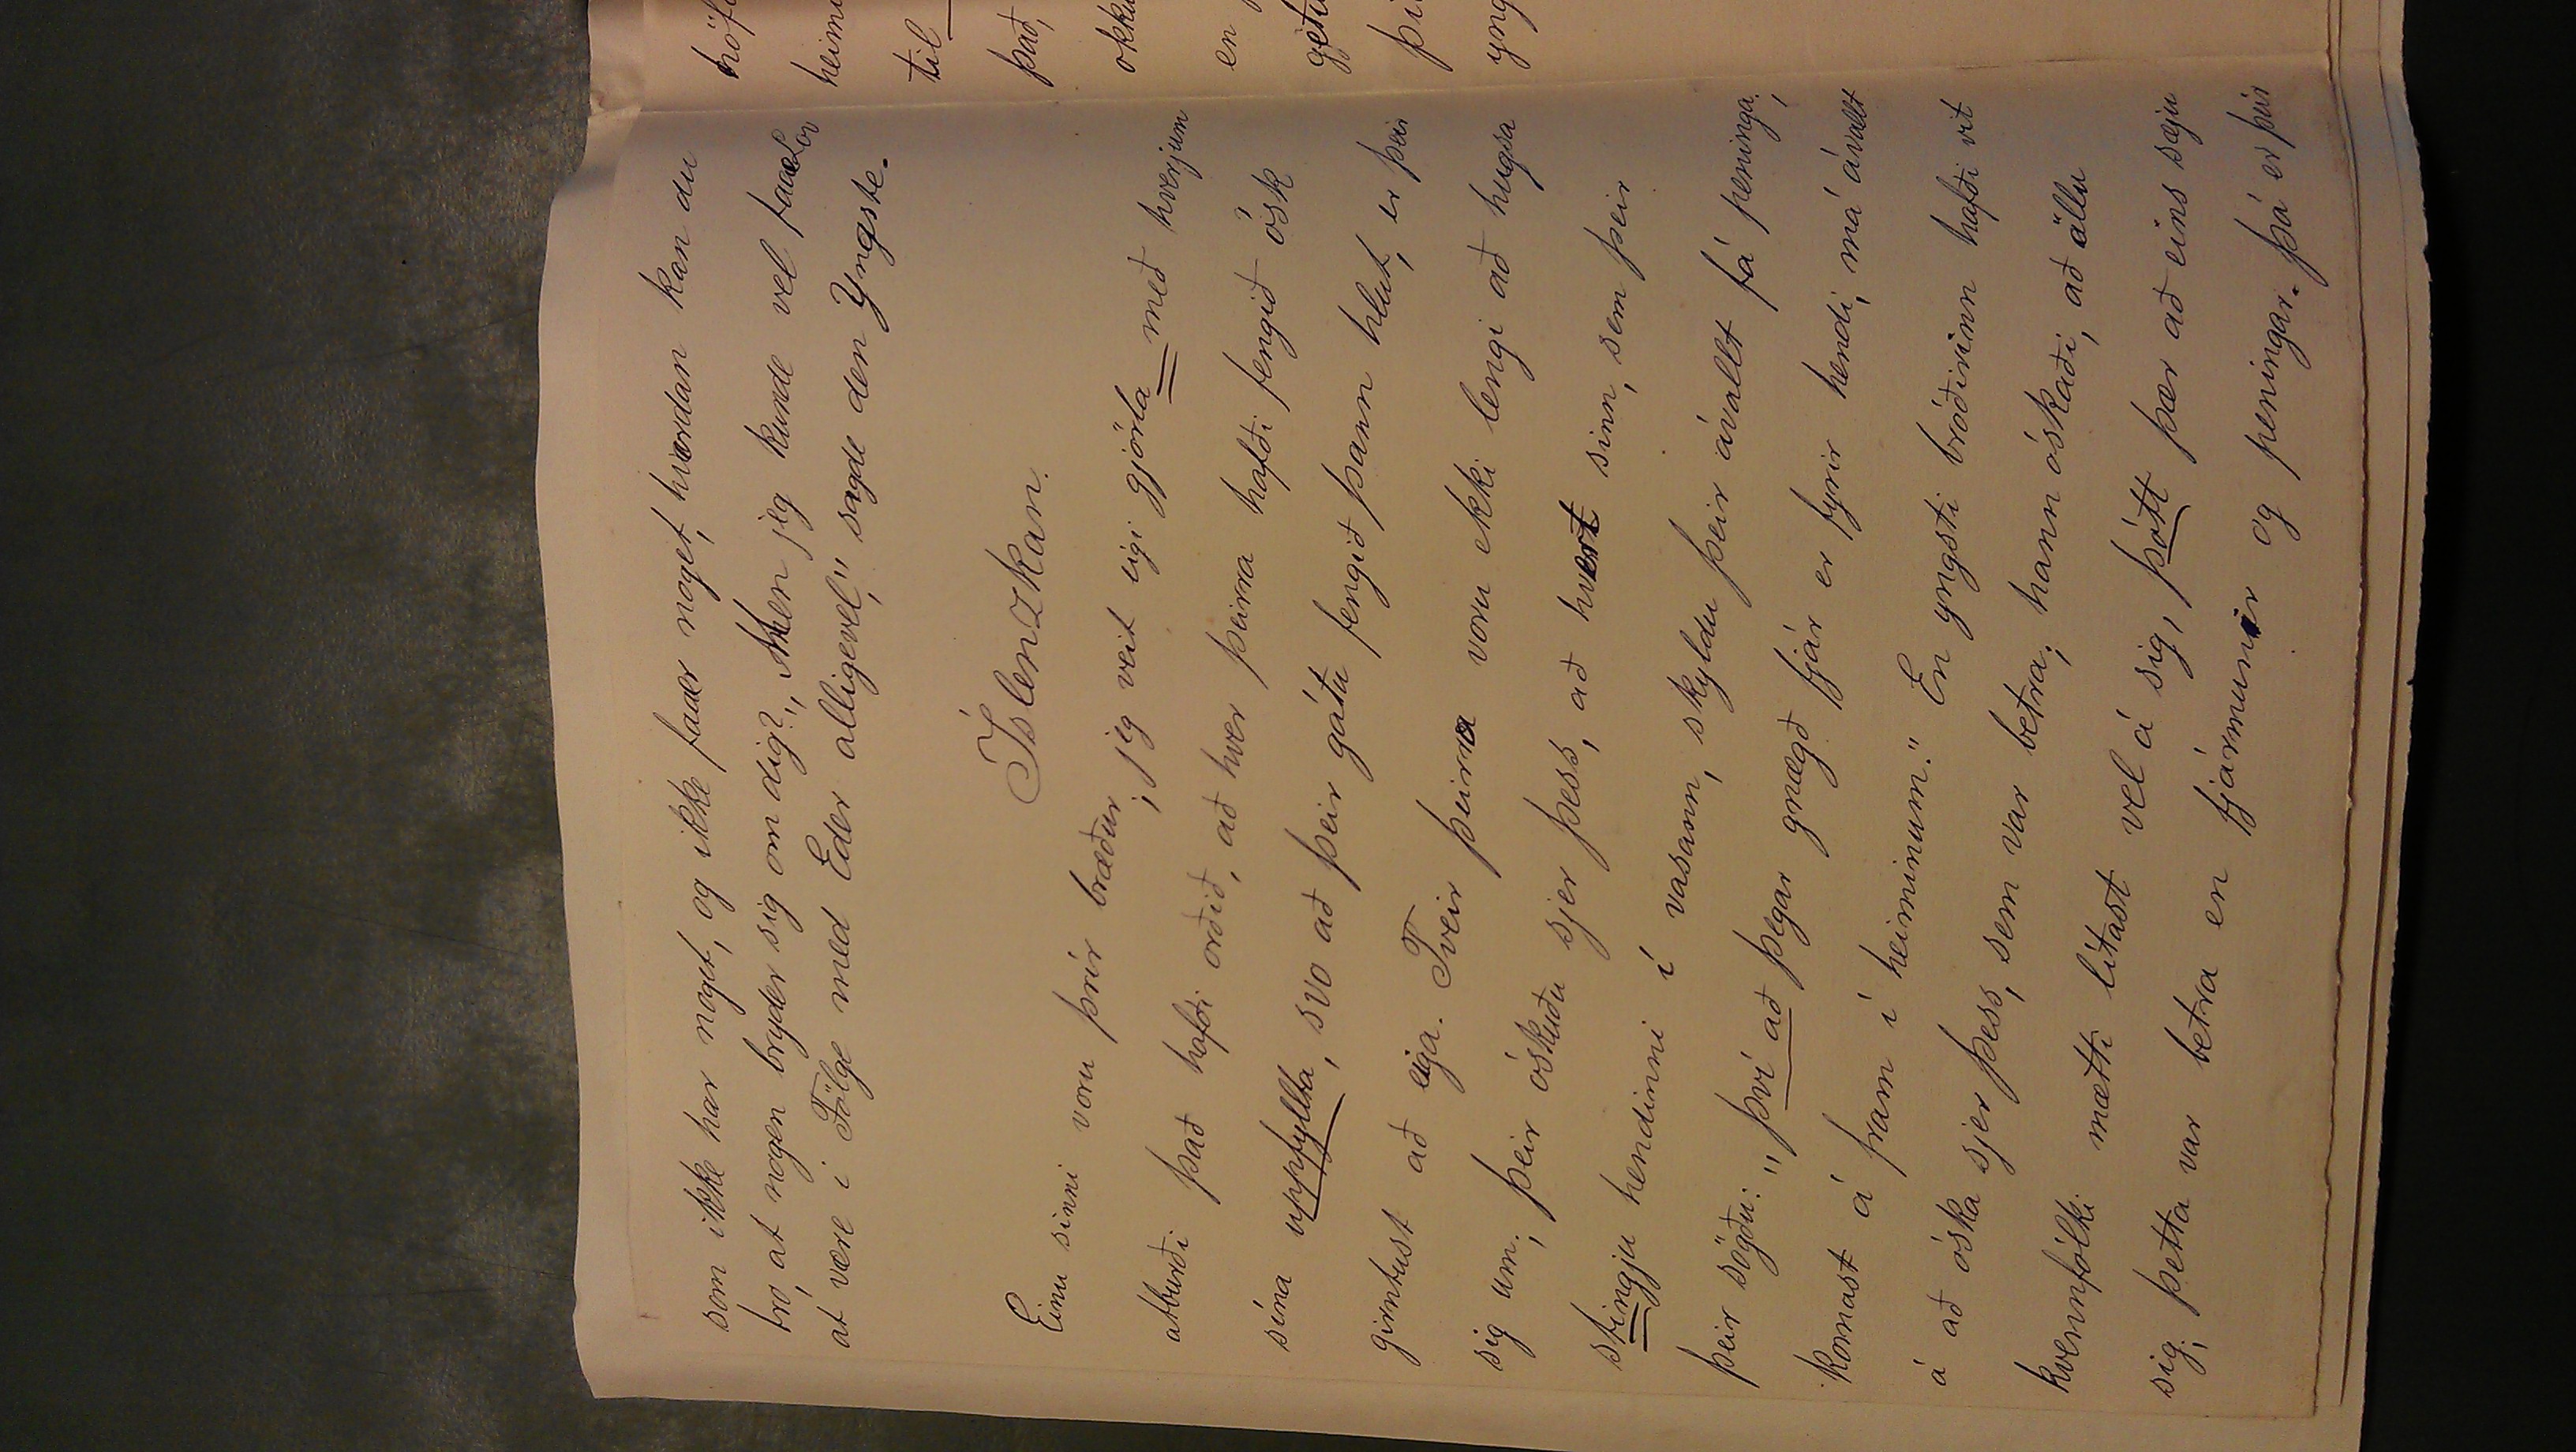 som ikke har noget, og ikke faaer noget, hvordan kan du
tro, at nogen bryder sig om dig?" "Men jeg kunde vel faae Lov
at være i Følge med Eder alligevel," sagde den Yngste.
Íslenzkan.
Einu sinni voru þrír bræður; jeg veit eigi gjörla með hverjum
atburði það hafði orðið, að hver þeirra hafði fengið ósk
sína uppfyllta, svo að þeir gátu fengið þann hlut, er þeir
girntust að eiga. Tveir þeirra voru ekki lengi að hugsa
sig um; þeir óskuðu sjer þess, að hvert sinn, sem þeir
stingju hendinni í vasann, skyldu þeir ávallt fá peninga;
þeir sögðu: "því að þegar gnægð fjár er fyrir hendi, má ávalt
komast á fram í heiminum." En yngsti bróðirinn hafði vit
á að óska sjer þess, sem var betra; hann óskaði, að öllu
kvennfólki mætti lítast vel á sig, þótt þær að eins sæju
sig; þetta var betra en fjármunir og peningar. Þá er þeir
höf
heimi
til
það,
okku
en
getu
þú
yng